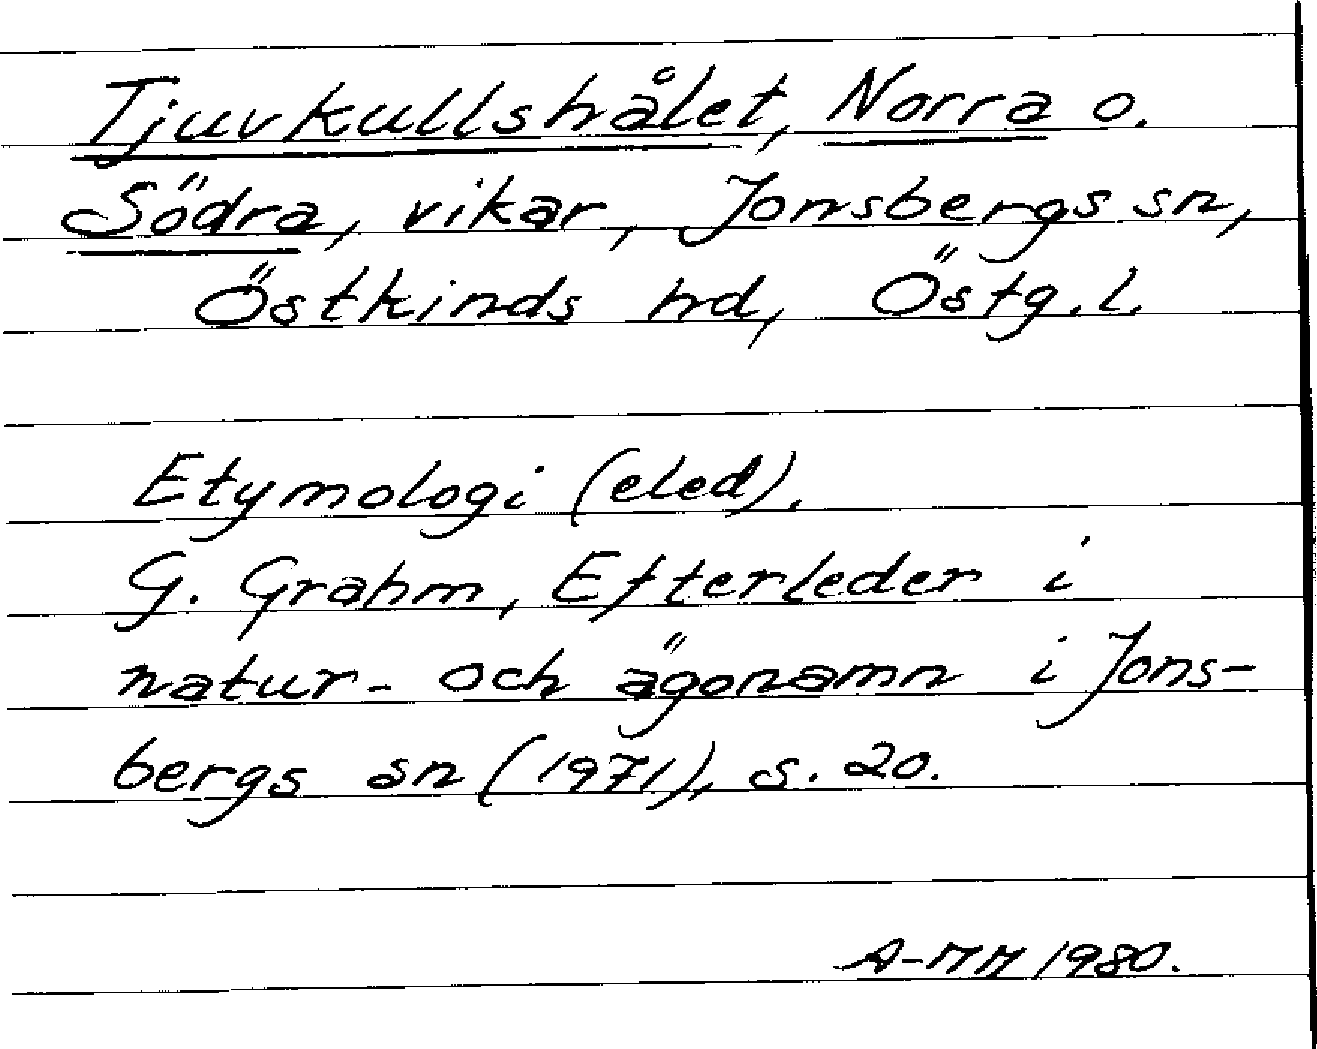 Tjuvkullshålet, Norra o.
Södra, vikar, Jonsbergs sn,
Östkinds hd, Östg.l.
Etymologi (eled).
G. Grahm, Efterleder i
natur- och ägonamn i Jons-
bergs sn (1971), s. 20.
A-MM 1980.